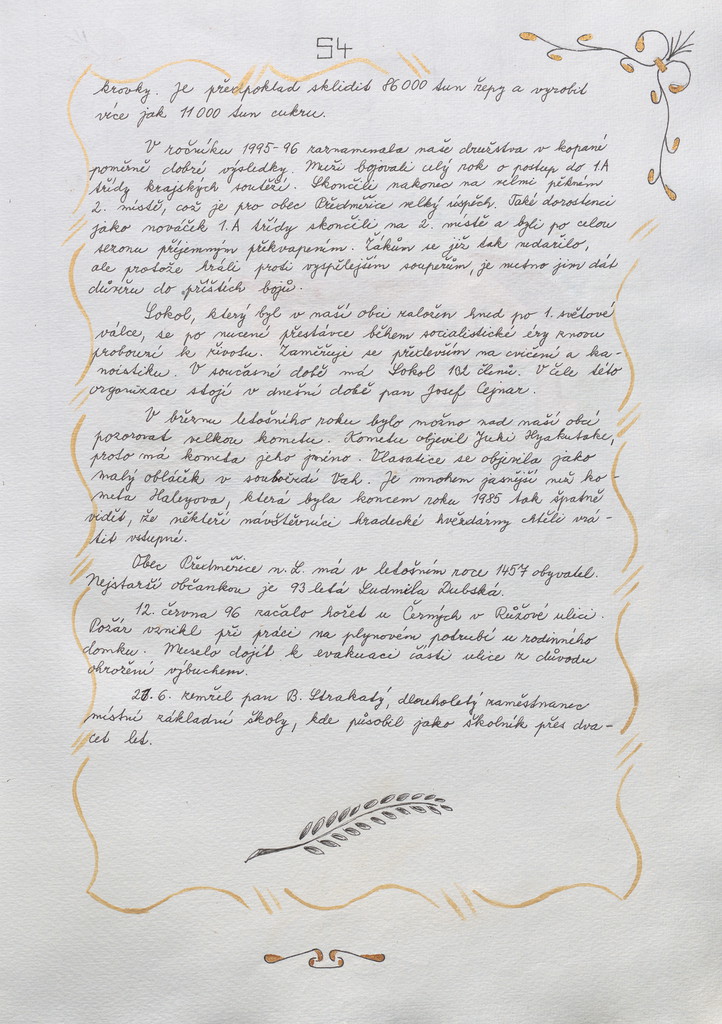 54
krovky. Je předpoklad sklidit 86 000 tun řepy a vyrobit
více jak 11 000 tun cukru.
V ročníku 1995-96 zaznamenala naše družstva v kopané
poměrně dobré výsledky. Muži bojovali celý rok o postup do 1.A
třídy krajských soutěží. Skončili nakonec na velmi pěkném
2. místě, což je pro obec Předměřice velký úspěch. Také dorostenci
jako nováček 1.A třídy skončili na 2. místě a byli po celou
sezonu příjemným překvapením. Žákům se již tak nedařilo,
ale protože hráli proti vyspělejším souperům, je nutno jim dát
důvěru do příštích bojů.
Sokol, který byl v naší obci založen hned po 1. světové
válce, se po nucené přestávce během socialistické éry znovu
probouzí k životu. Zaměřuje se především na cvičení a ka-
noistiku. V současné době má Sokol 182 členů. V čele této
organizace stojí v dnešní době pan Josef Cejnar.
V březnu letošního roku bylo možno nad naší obcí
pozorovat velkou kometu. Kometu objevil Juki Hyakutake,
proto má kometa jeho jméno. Vlasatice se objevila jako
malý obláček v souhvězdí Vah. Je mnohem jasnější než ko-
meta Haleyova, která byla koncem roku 1985 tak špatně
vidět, že někteří návštěvníci hradecké hvězdárny chtěli vrá-
tit vstupné.
Obec Předměřice n. L. má v letošním roce 1457 obyvatel.
Nejstarší občankou je 93 letá Ludmila Dubská.
12. června 96 začalo hořet u Černých v Růžové ulici.
Požár vznikl při práci na plynovém potrubí u rodinného
domku. Muselo dojít k evakuaci části ulice z důvodu
ohrožení výbuchem.
21. 6. zemřel pan B. Strakatý, dlouholetý zaměstnanec
místní základní školy, kde působil jako školník přes dva-
cet let.